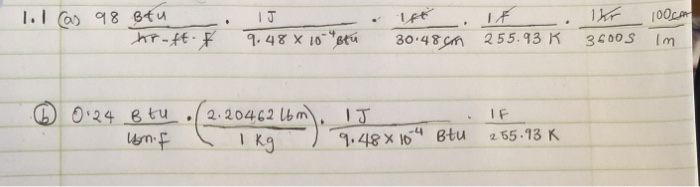 1.1 (a) 98 Btu/hr-ft.f · 1J/9.48 × 10⁻⁴ Btu · 1ft/30.48 cm · 1F/255.93 K · 1hr/3600S 100cm/1m
(b) 0.24 Btu/lbm.f · (2.20462 lbm/1 kg) · 1J/9.48 × 10⁻⁴ Btu · 1F/255.93 K